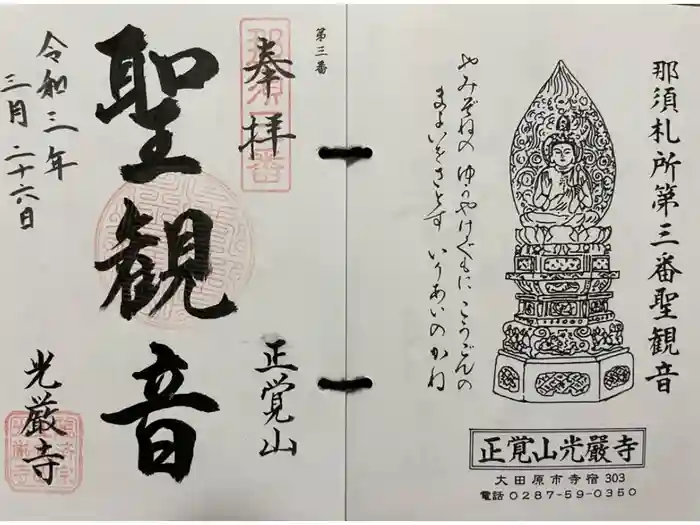 那須札所第三番聖観音
やみぞねの ゆうやけぐもに こうごんの
まよいをさとす いりあいのかね
正覚山光厳寺
大田原市寺宿303
電話0287-59-0350
第三番
奉拝
正覚山
聖観音
光厳寺
令和三年
三月二十六日